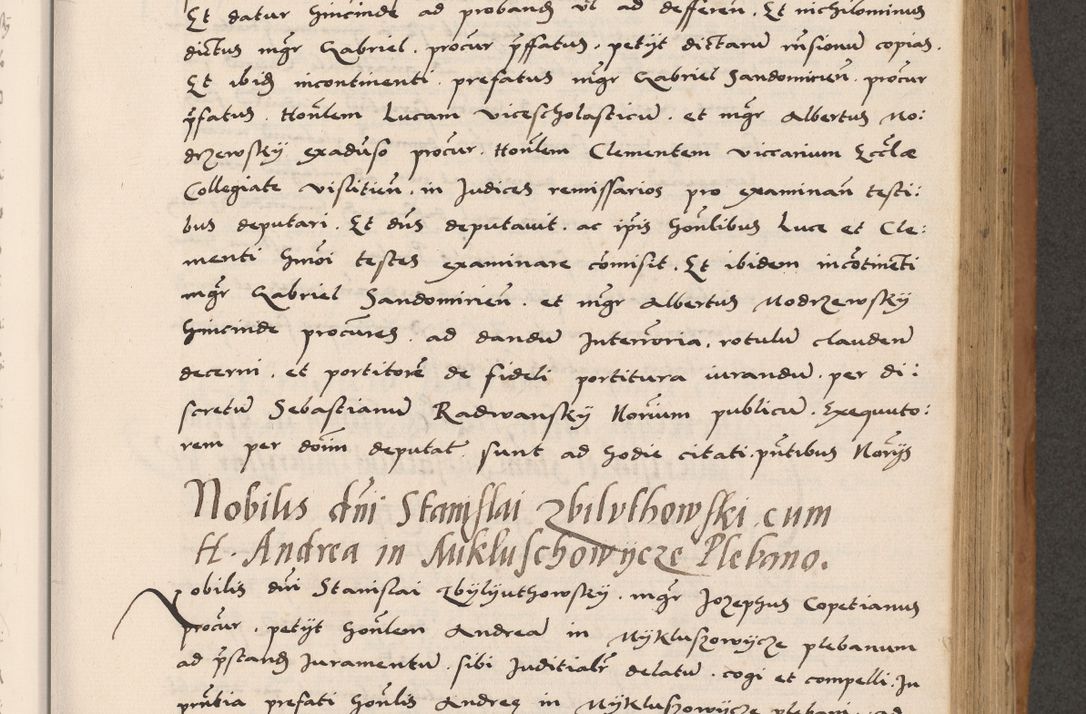 Et datur hincinde ad proband vl ad defferen. Et nichilominus
dictus mgr Gabriel. procur pffatus. petijt dictarū rnsionū copias.
Et ibid incontinenti. prefatus mgr Gabriel Sandomirien. procur
pfatus. Honlem Lucam vicescholasticū. et mgr Albertus Mo:
drzewsky exaduso procur. Honlem Clementem viccarium Eccłae
Collegiate vislitien. in Judices remissarios pro examinan testi:
bus deputari. Et dns deputauit. ac ipis honlibus Luce et Cle:
menti hmoi testes examinare comisit. Et ibidem incotinenti
mgr Gabriel Sandomirien. et mgr Albertus Modrzewsky
hincinde procures. ad dandū Interroria. rotulū clauden
decerni. et portitore de fideli portitura iurandū. per di:
scretū Sebastianū Radwansky Norium publicū. Exequuto:
rem per doim deputat. sunt ad hodie citati. pntibus Norijs
Nobilis dni Stanislai Zbiluthowski cum
H. Andrea in Mikluschowycze Plebano.
Nobilis dni Stanislai Zbylyuthowsky. mgr Jozephus Copetianus
procur. petijt honlem Andreā in Mykluszowycze plebanum
ad pstand Iuramentū. sibi Juditialr delatū. cogi et compelli. In
pntia prefati honlis Andreę in Mykluszowycze plebani. ad